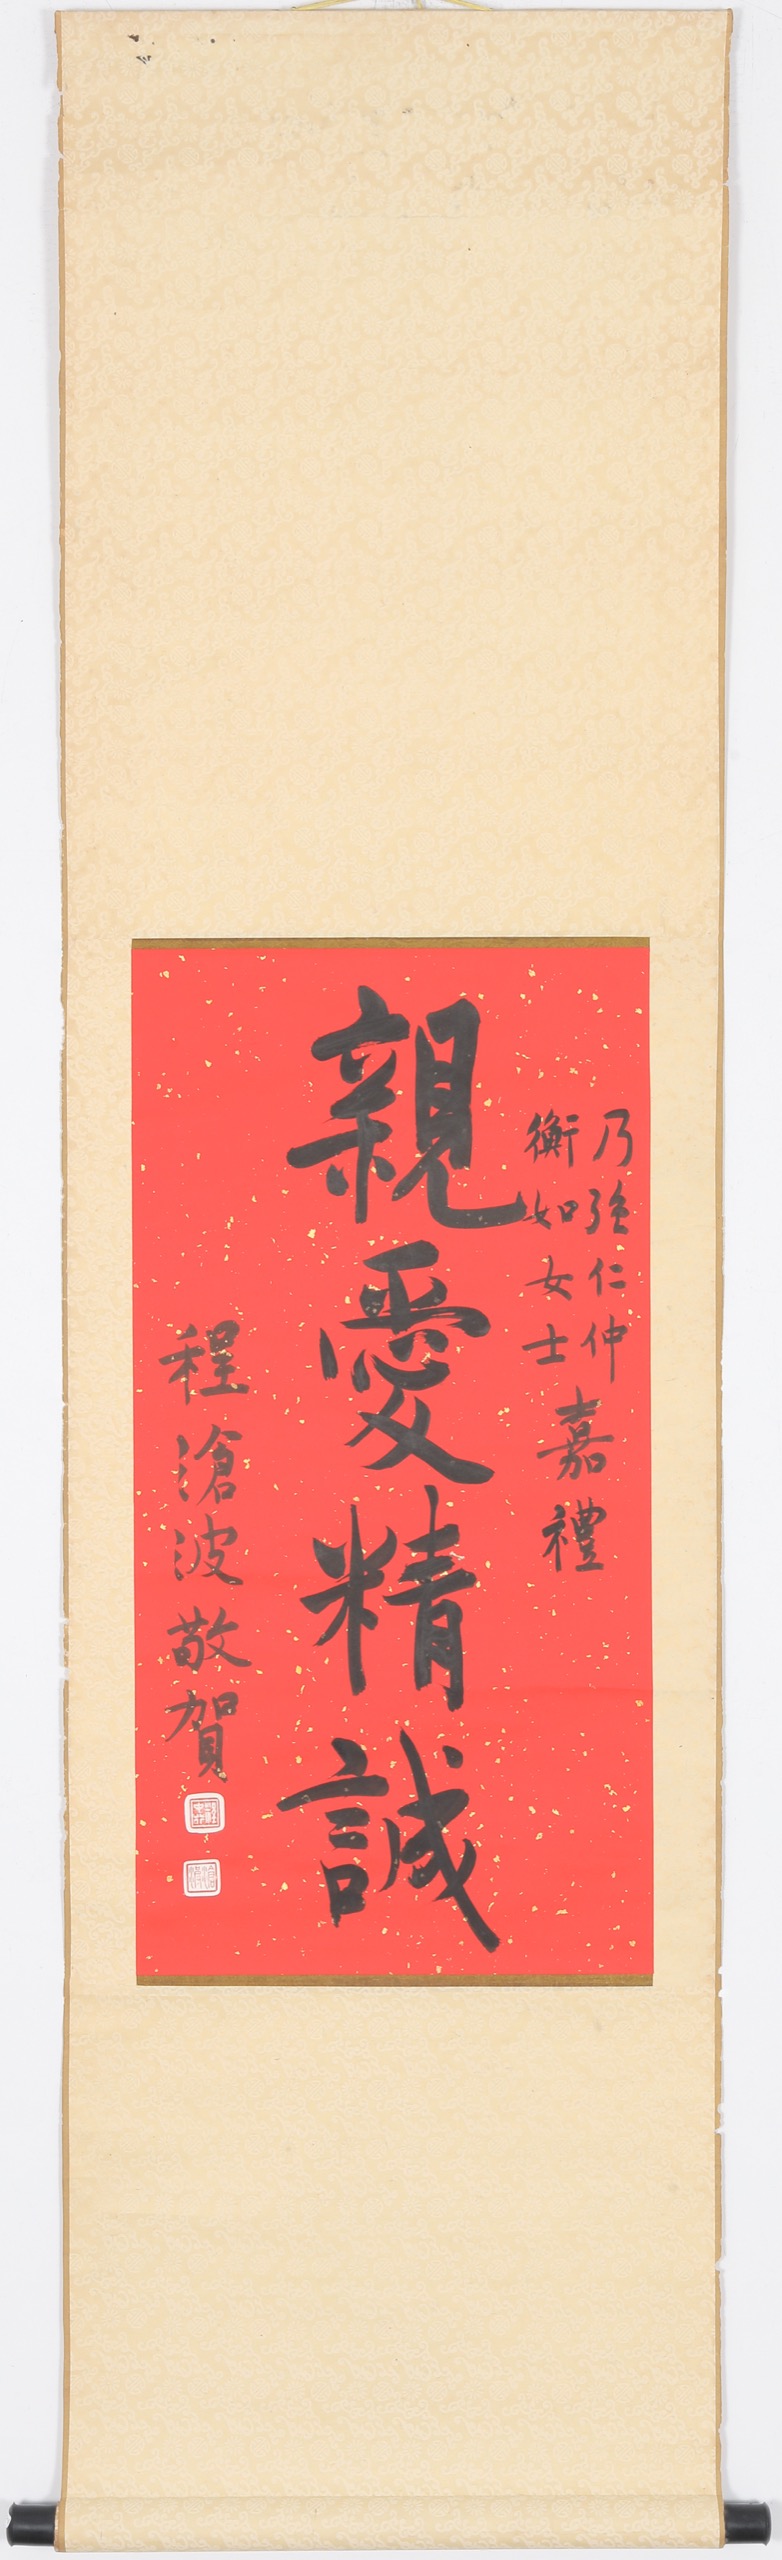 乃強仁仲
衡如女士
嘉禮
親愛精誠
程滄波敬賀